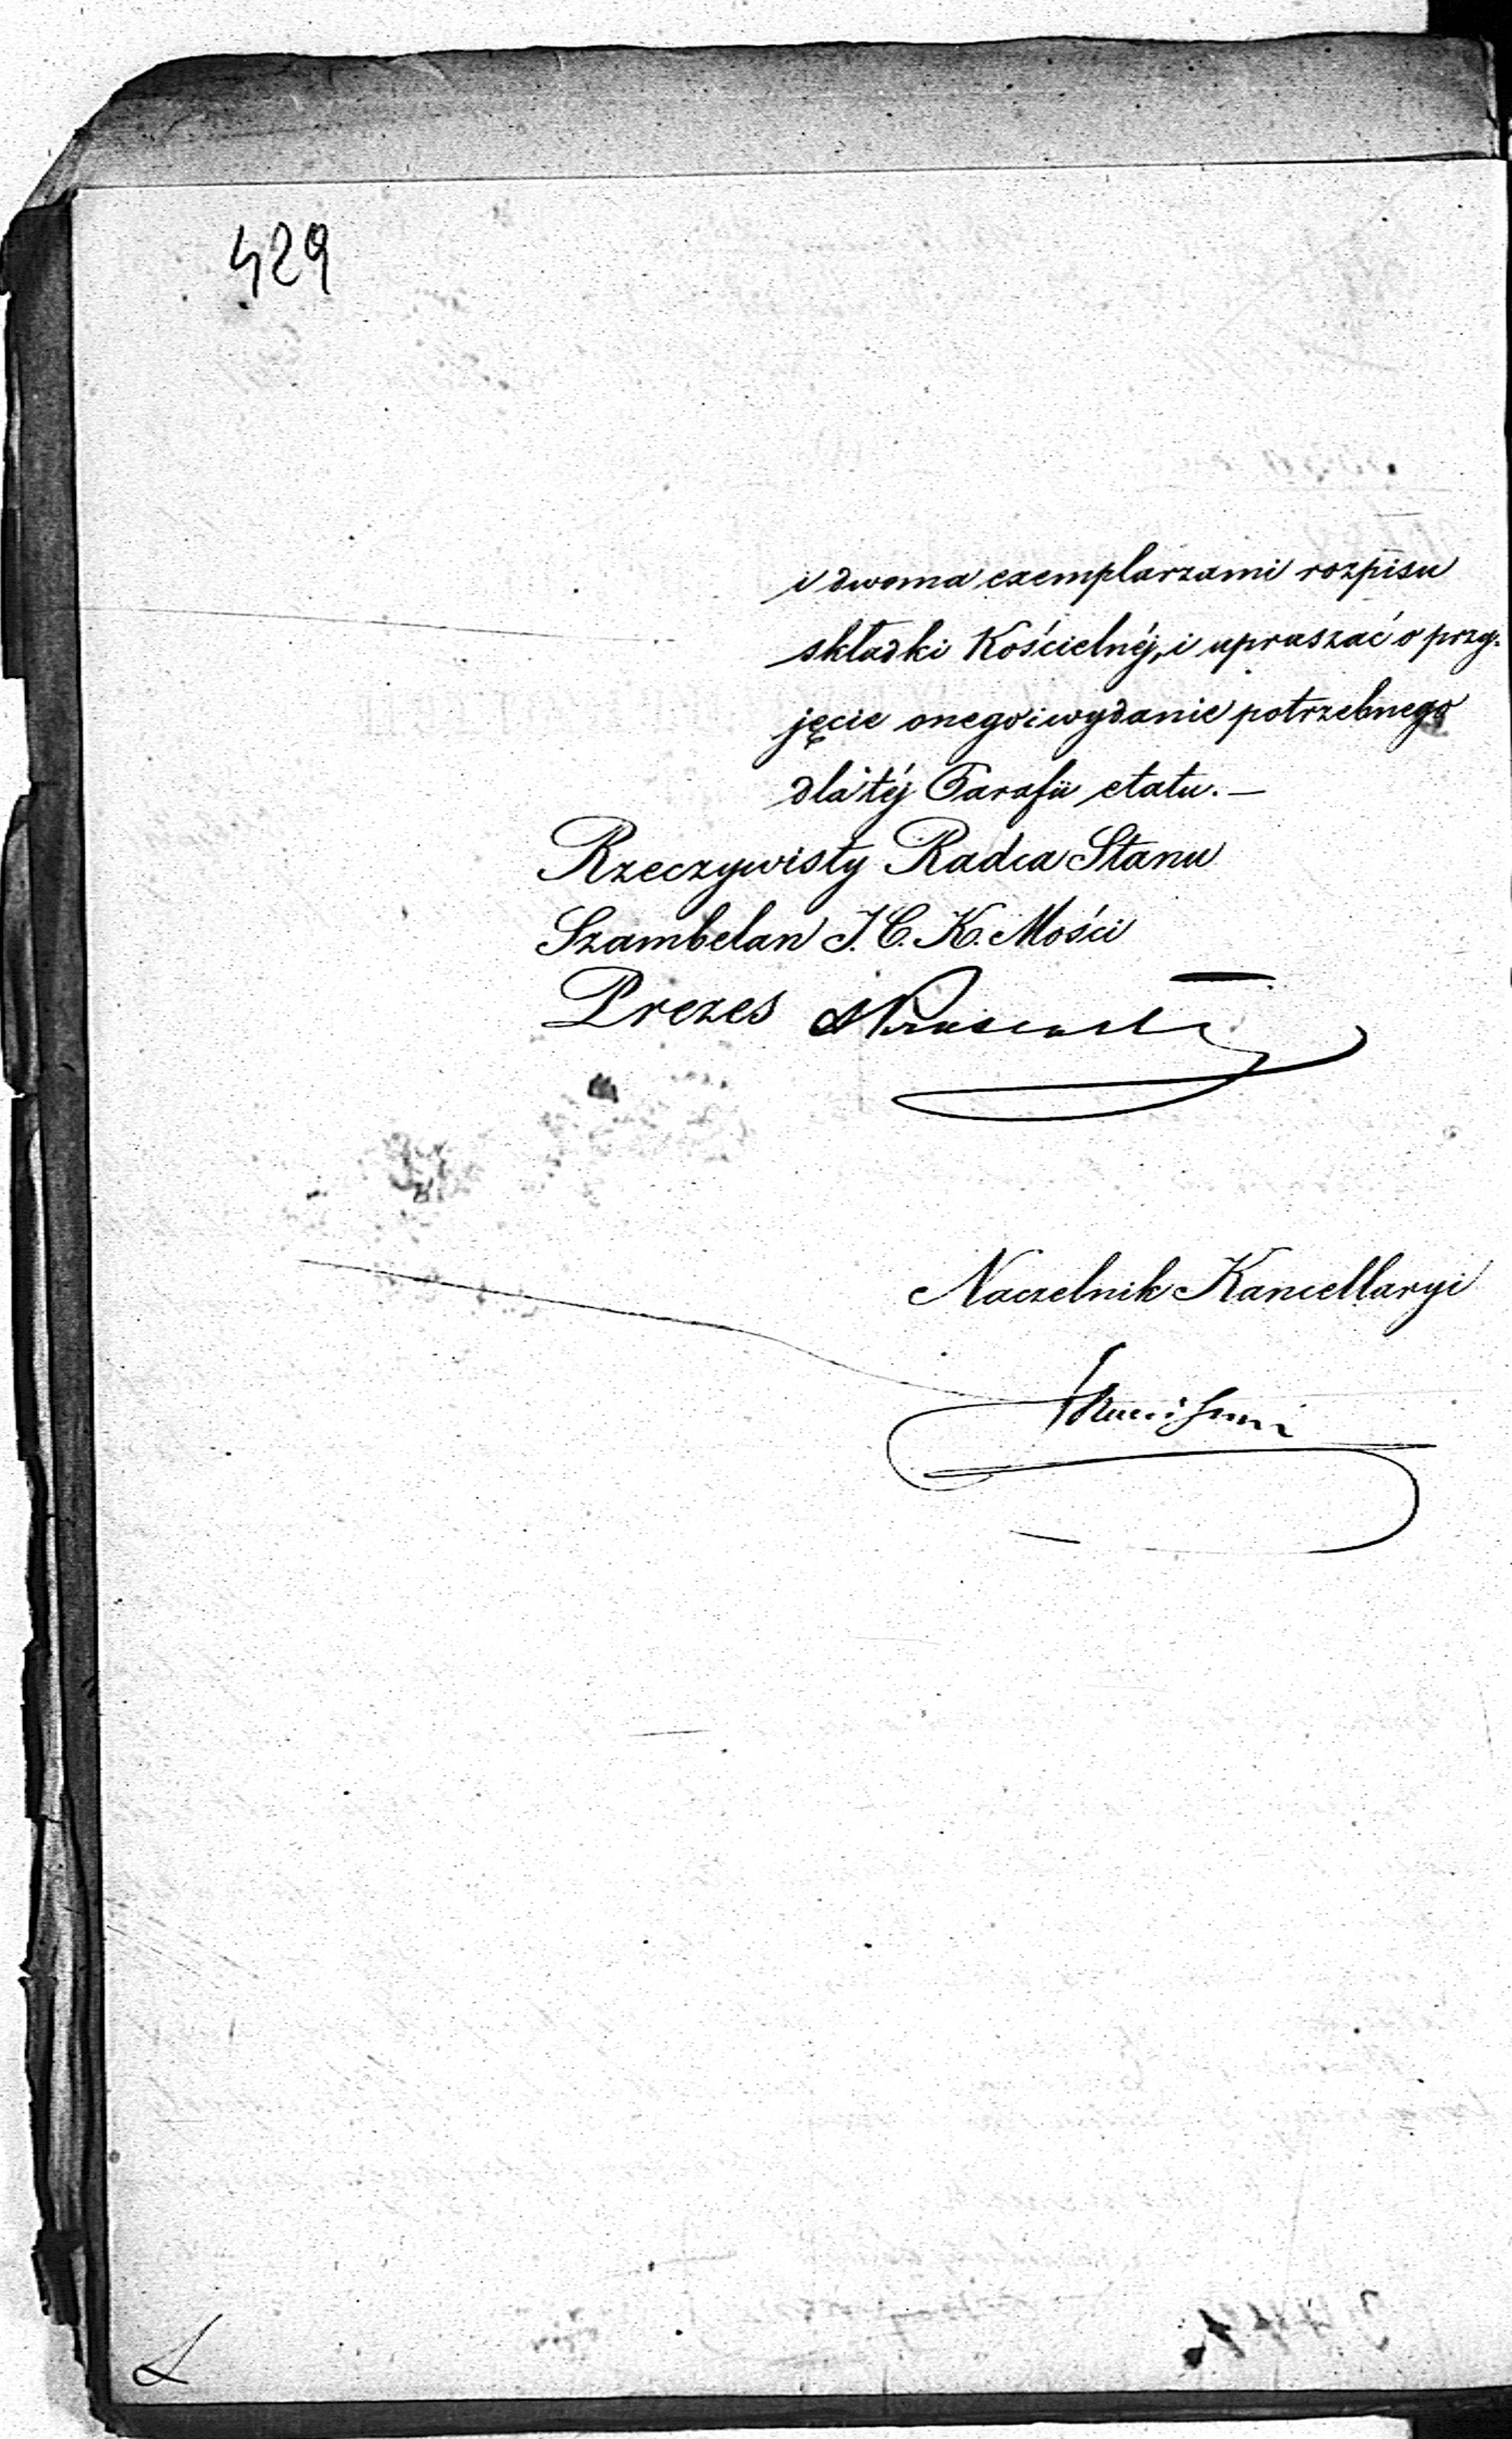 429
i dwoma exemplarzami rozpisu
składki Kościelnéj, i upraszać o przy-
jęcie onego i wydanie potrzebnego
dla téj Parafii etatu. —
Rzeczywisty Radca Stanu
Szambelan J. C. K. Mości
Prezes
Naczelnik Kancellaryi